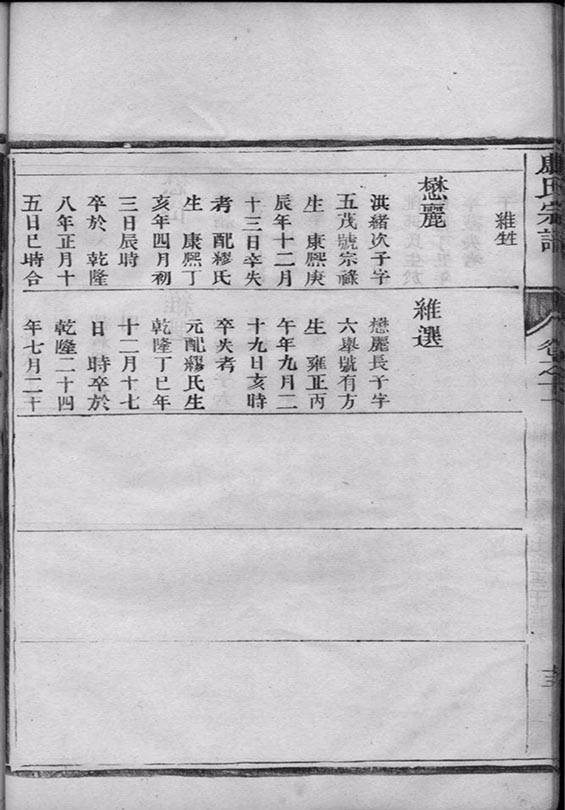 氏宗譜
卷之十
十三
子
維甡
懋麗
洪緒次子字
五茂號宗祿
生 康熙庚
辰年十二月
十三日卒失
考 配繆氏
生 康熙丁
亥年四月初
三日辰時
卒於 乾隆
八年正月十
五日巳時合
維選
懋麗長子字
六舉號有方
生 雍正丙
午年九月二
十九日亥時
卒失考
元配繆氏生
乾隆丁巳年
十二月十七
日 時卒於
乾隆二十四
年七月二十